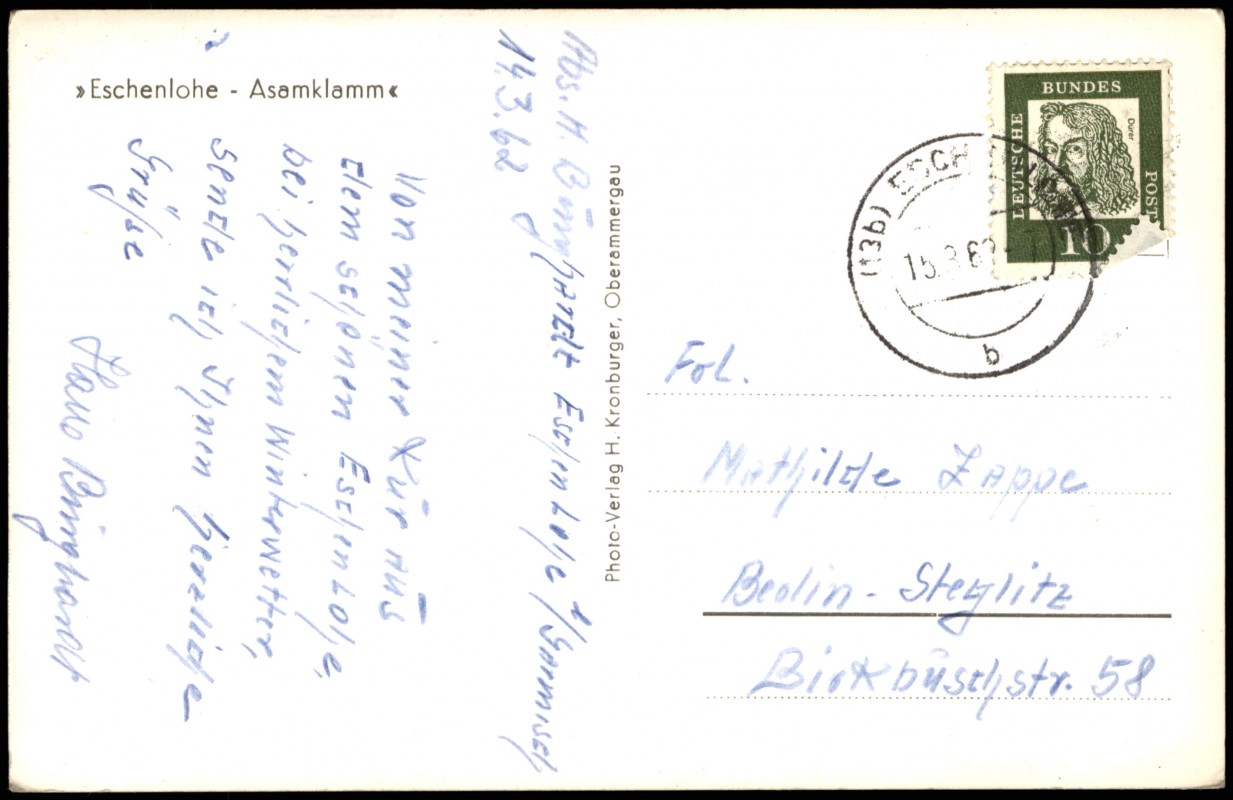 »Eschenlohe - Asamklamm«
Abs. H. Burghardt Eschenlohe b/Garmisch
14.3.62
Von meiner Kur aus
dem schönen Eschenlohe,
bei herrlichem Winterwetter,
sende ich Ihnen herzliche
Grüße
Hans Burghardt
Photo-Verlag H. Kronburger, Oberammergau
DEUTSCHE
BUNDES
POST
Dürer
10
(13b) ESCHENLOHE
15.3.62
b
Frl.
Mathilde Zappe
Berlin - Steglitz
Birkbuschstr. 58